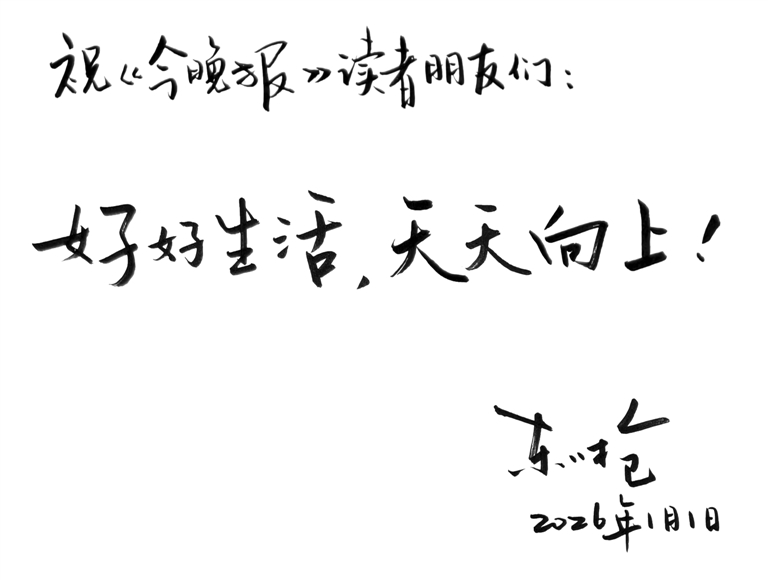 祝《今晚报》读者朋友们：
好好生活，天天向上！
东
2026年1月1日